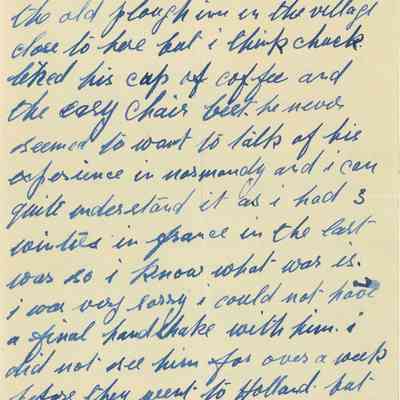 the old plough inn in the village
close to here but i think chuck
liked his cup of coffee and
the easy chair best. he never
seemed to want to talk of his
experience in normandy and i can
quite understand it as i had 3
winters in france in the last
war so i know what war is.
i was very sorry i could not have
a final handshake with him. i
did not see him for over a week
before they went to Holland but